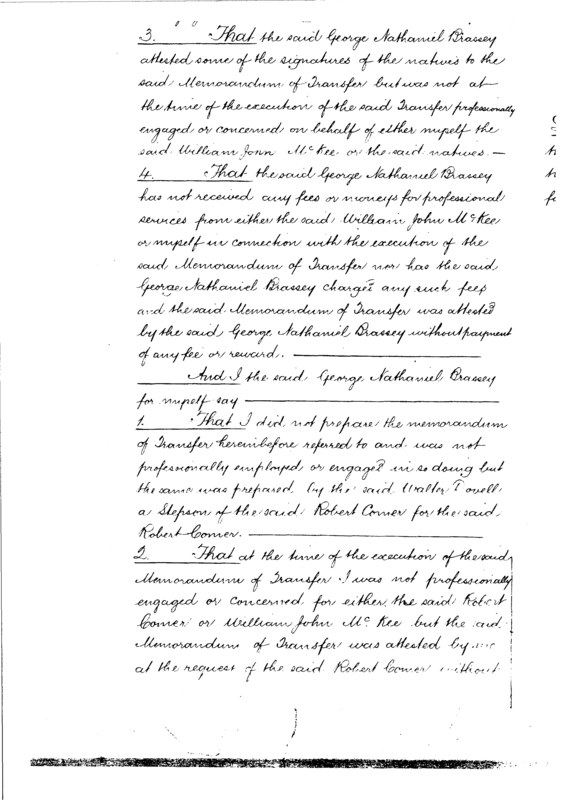 3. That the said George Nathaniel Brassey
attested some of the signatures of the natives to the
said Memorandum of Transfer but was not at
the time of the execution of the said Transfer professionally
engaged or concerned on behalf of either myself the
said William John McKee or the said natives. —
4. That the said George Nathaniel Brassey
has not received any fees or moneys for professional
services from either the said William John McKee
or myself in connection with the execution of the
said Memorandum of Transfer nor has the said
George Nathaniel Brassey charged any such fees
and the said Memorandum of Transfer was attested
by the said George Nathaniel Brassey without payment
of any fee or reward. —
And I the said George Nathaniel Brassey
for myself say —
1. That I did not prepare the memorandum
of Transfer hereinbefore referred to and was not
professionally employed or engaged in so doing but
the same was prepared by the said Walter
a Stepson of the said Robert Comer for the said
Robert Comer. —
2. That at the time of the execution of the said
Memorandum of Transfer I was not professionally
engaged or concerned for either the said Robert
Comer or William John McKee but the said
Memorandum of Transfer was attested by me
at the request of the said Robert Comer without